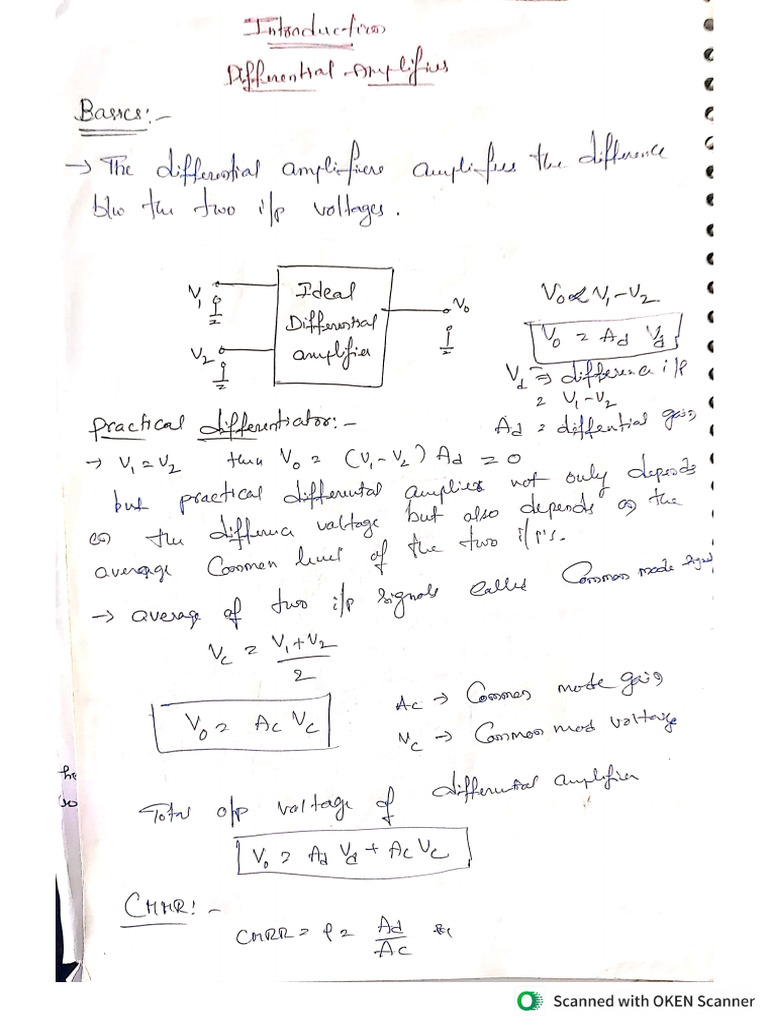 Introduction
Differential Amplifiers
Basics:-
→ The differential amplifiers amplifies the difference
b/w the two i/p voltages.
V₁
V₂
Ideal
Differential
amplifier
V₀
V₀ ∝ V₁-V₂
V₀ = Ad Vd
Vd ⇒ difference i/p
= V₁-V₂
Ad = diffential gain
Practical differentiator:-
→ V₁ = V₂ then V₀ = (V₁-V₂) Ad = 0
but practical differental amplifier not only depends
on the differenc voltage but also depends on the
average Common level of the two i/p's.
→ average of two i/p signals called Common mode signal
Vc = V₁+V₂ / 2
V₀ = Ac Vc
Ac → Common mode gain
Vc → Common mod voltage
Total o/p voltage of differential amplifier
V₀ = Ad Vd + Ac Vc
CMMR:-
CMRR = ρ = Ad / Ac
he
so
Scanned with OKEN Scanner